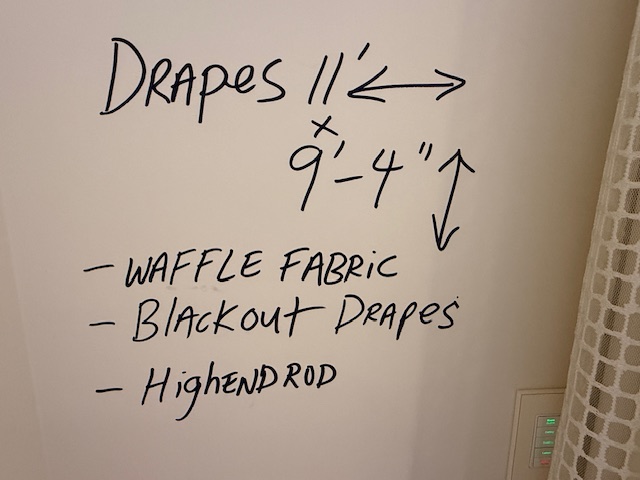 Drapes 11' ↔
x
9'-4" ↕
- WAFFLE FABRIC
- Blackout Drapes
- HighEND ROD